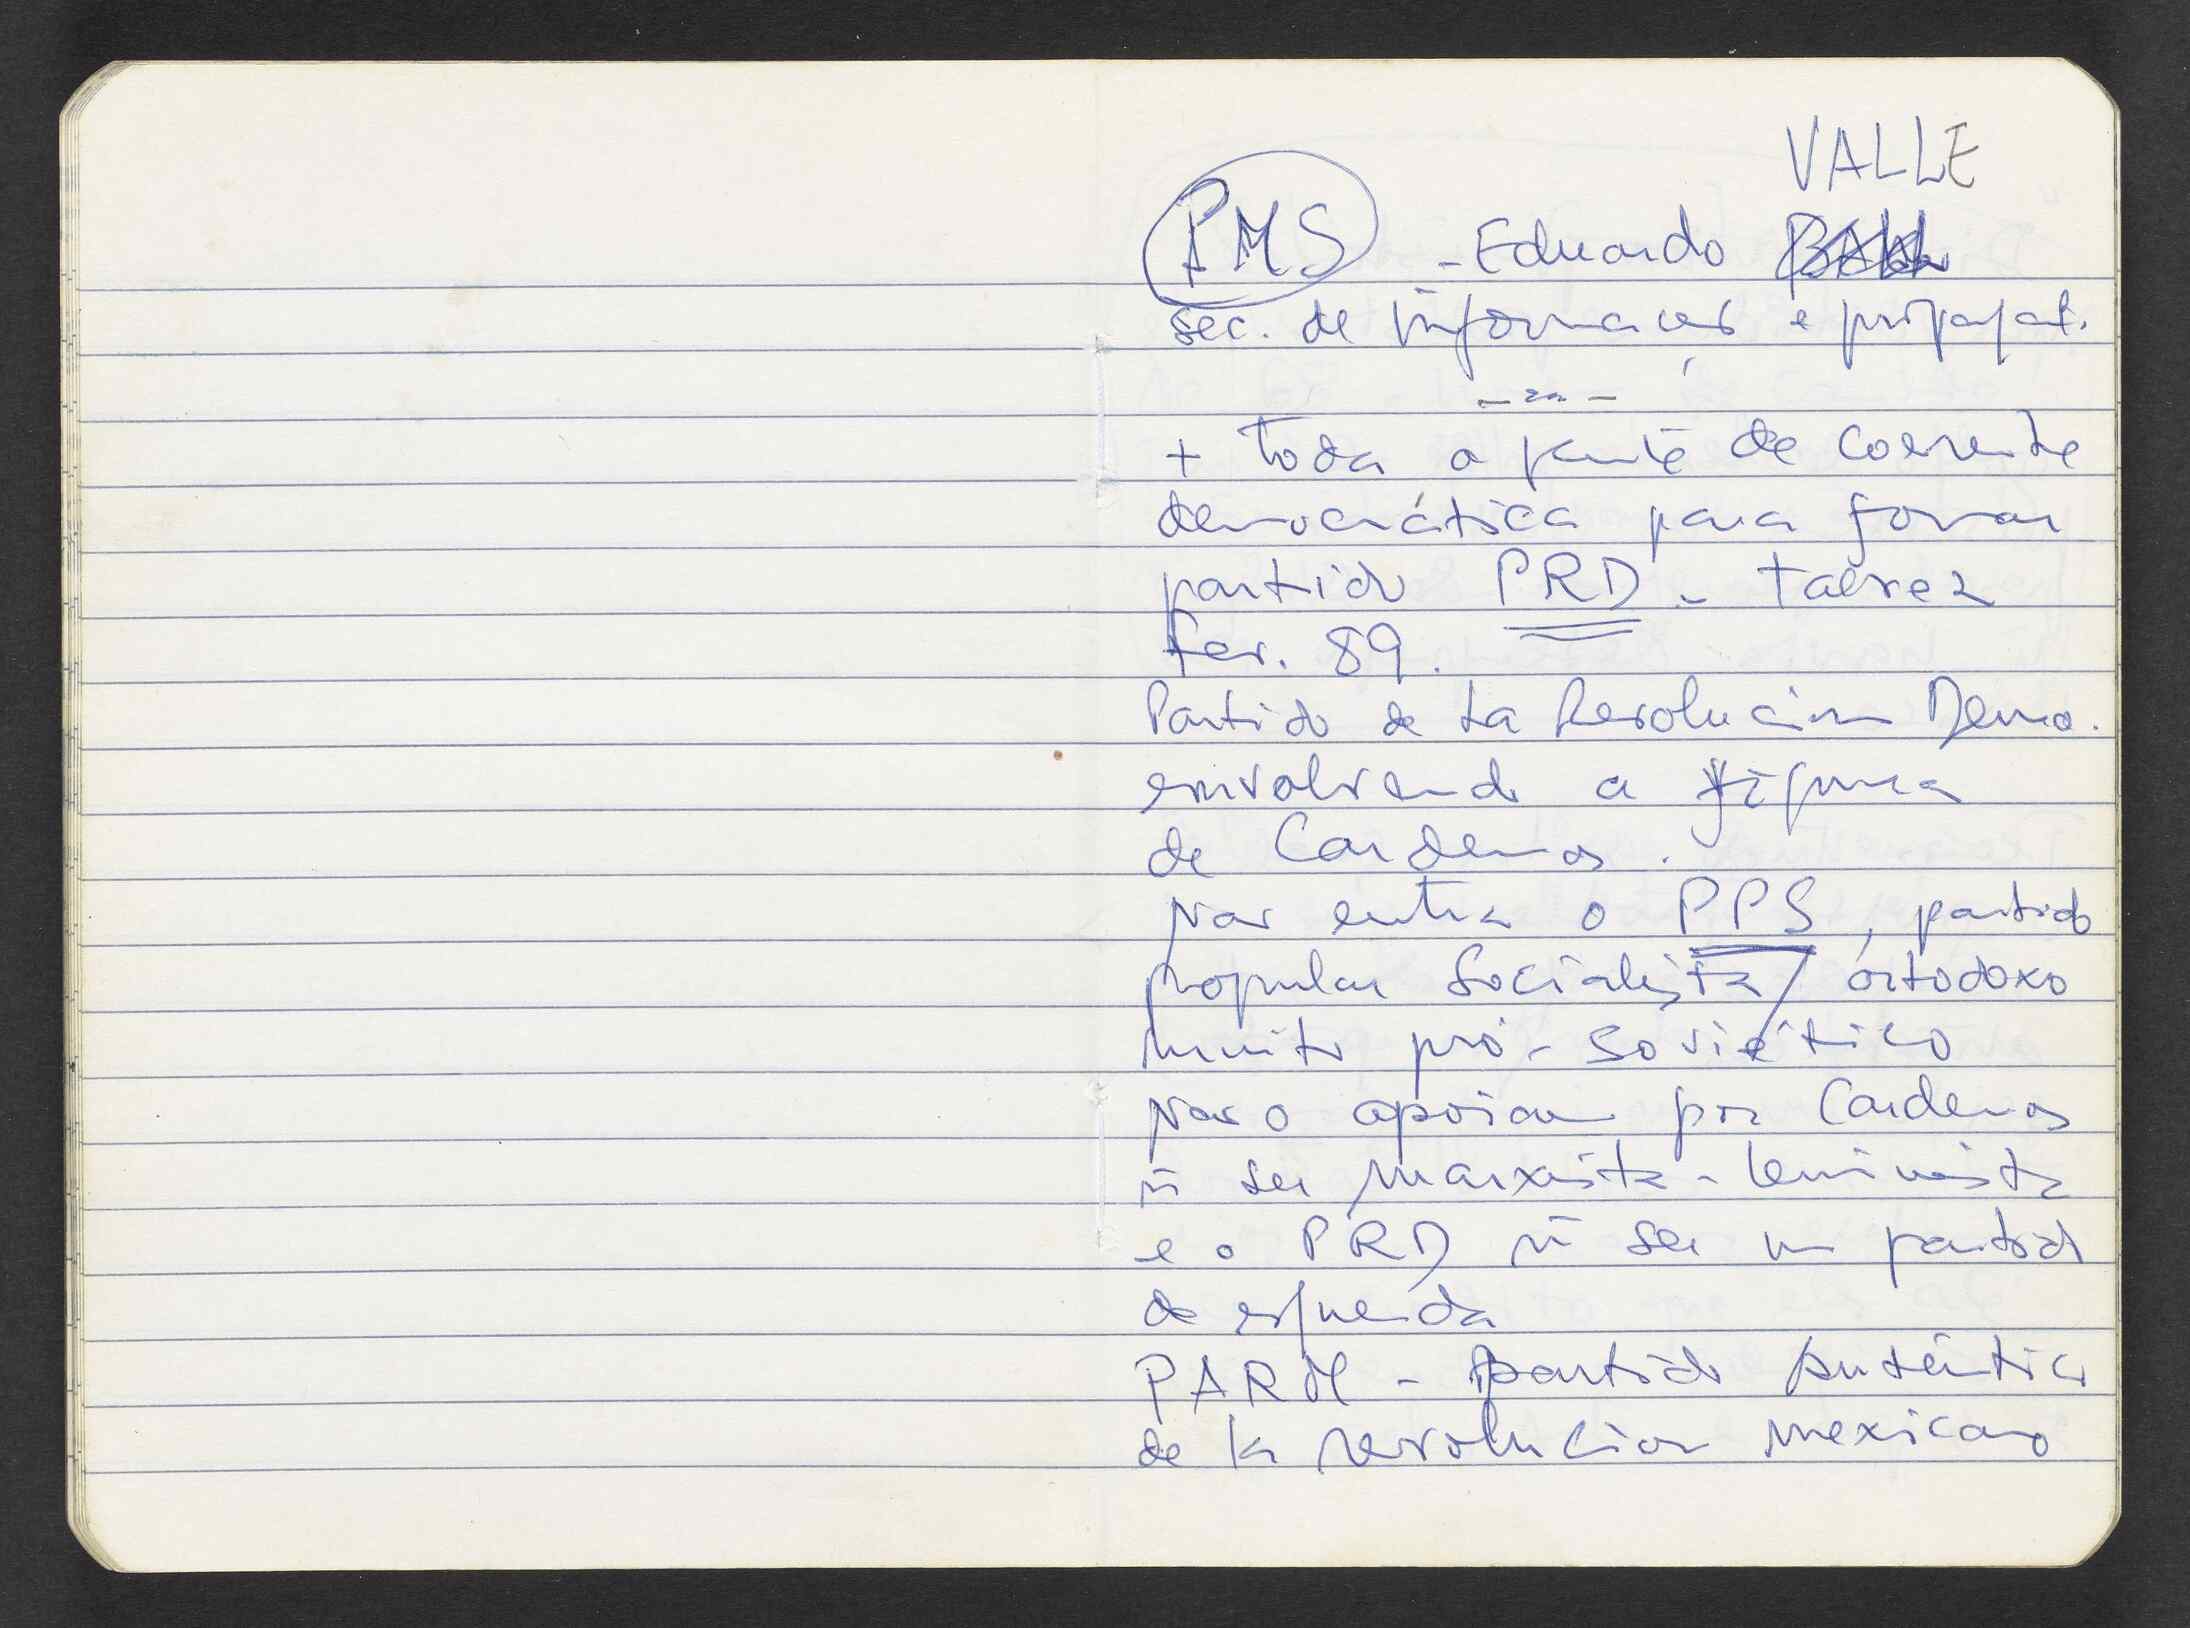 VALLE
PMS - Eduardo
sec. de informaciones e propagat.
+ toda a gente de corrente
democrática para formar
partido PRD - talvez
fev. 89.
Partido de la Revolucion Demo.
envolvendo a figura
de Cardenas.
Nao entra o PPS, partido
popular socialista, ortodoxo
muito pró-soviético
Nao o apoiam por Cardenas
ñ ser marxista-leninista
e o PRD ñ ser um partido
de esquerda
PARM - partido autêntico
de la revolucion mexicano